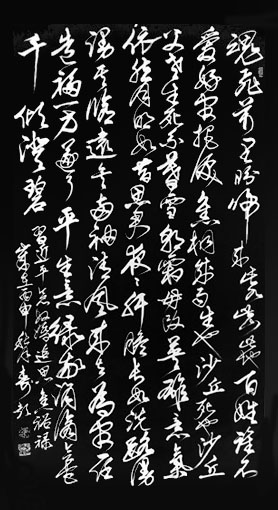 魂飛萬里盼歸來此水此山此地百姓誰不
愛好官把淚焦桐成雨生也沙丘死也沙丘
父老生死系暮雪朝霜毋改英雄意氣
依然月明如昔思君夜夜肝膽長如洗路漫
漫其修遠矣兩袖清風來去為官一任
造福一方遂了平生意綠我涓滴會它
千頃澄碧
習近平 追思焦裕禄
丙申